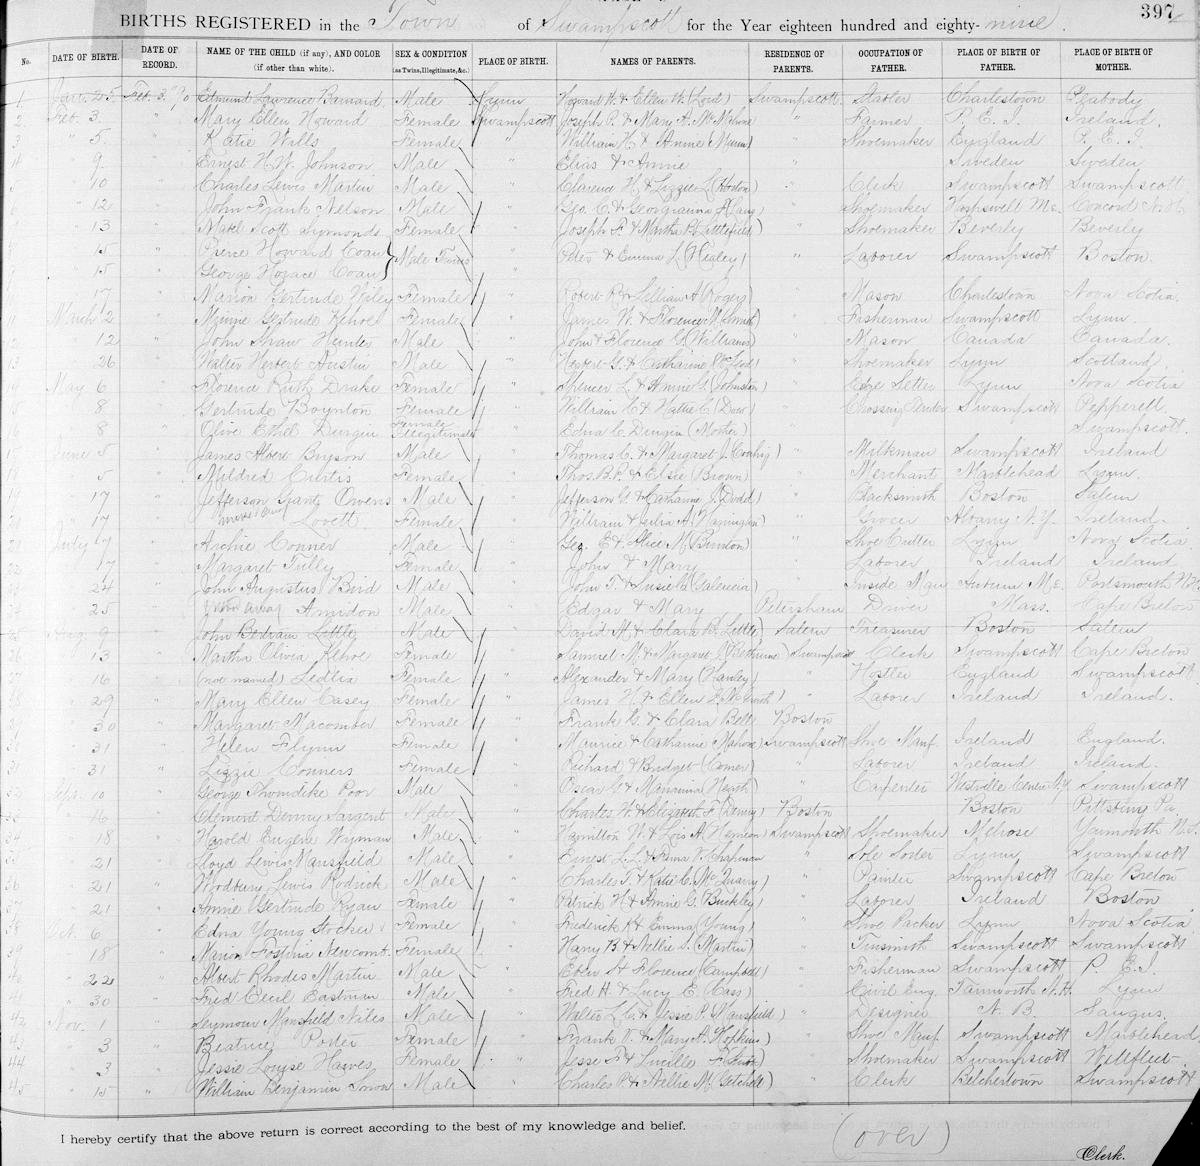 397
BIRTHS REGISTERED in the Town of Swampscott for the Year eighteen hundred and eighty-nine
No. DATE OF BIRTH. DATE OF RECORD. NAME OF THE CHILD (if any), AND COLOR (if other than white). SEX & CONDITION (as Twins, Illegitimate, &c.) PLACE OF BIRTH. NAMES OF PARENTS. RESIDENCE OF PARENTS. OCCUPATION OF FATHER. PLACE OF BIRTH OF FATHER. PLACE OF BIRTH OF MOTHER.
1 Jan. 25 Feb. 3. '90 Edmund Lawrence Barnard Male Lynn Howard W. & Ellen W. (Lord) Swampscott Stabler Charlestown Peabody
2 Feb. 3. " Mary Ellen Howard Female Swampscott Joseph P. & Mary A. " Farmer P. E. I. Ireland.
3 " 5. " Katie Wills Female " William H. & Annie (Munn) " Shoemaker England P. E. I.
4 " 9 " Ernest H. W. Johnson Male " Elias & Annie " Sweden Sweden
5 " 10 " Charles Lewis Martin Male " Clarence H. & Lizzie L. (Horton) " Clerk Swampscott Swampscott
6 " 12 " John Frank Nelson Male " Geo. C. & Georgianna A. " Shoemaker Harpswell Me. Concord N.H.
" 13 " Mabel Scott Symonds Female " Joseph F. & Martha B. (Littlefield) " Shoemaker Beverly Beverly
" 15 " Pierce Howard Coan } Male Twins " Peter & Emma L. (Healey) " Laborer Swampscott Boston
" 15 " George Horace Coan }
" 17 " Marion Gertrude Wiley Female " Robert R. & Lillian A. (Rogers) " Mason Charlestown Nova Scotia
11 March 2 " Minnie Gertrude Kehoe Female " James W. & Florence M. (Smith) " Fisherman Swampscott Lynn
" 12 " John Shaw Hunter Male " John & Florence G. (Williams) " Mason Canada Canada.
13 " 26 " Walter Herbert Austin Male " Herbert G. & Catharine " Shoemaker Lynn Scotland
14 May 6 " Florence Ruth Drake Female " Spencer L. & Annie G. (Johnston) " Edge Setter Lynn Nova Scotia
" 8 " Gertrude Boynton Female " William H. & Hattie C. (Dow) " Crossing Tender Swampscott Pepperell
" 8 " Olive Ethel Durgin Female Illegitimate " Edna C. Durgin (Mother) " Swampscott.
17 June 5 " James Albert Bryson Male " Thomas C. & Margaret J. " Milkman Swampscott Ireland
" 5 " Mildred Curtis Female " Thos. B. P. & Elsie (Brown) " Merchant Marblehead Lynn
" 17 " Jefferson Grant Owens Male " Jefferson G. & Catharine J. (Dodd) " Blacksmith Boston Salem
20 " 17 " Lovett Female " William & Julia A. (Harrington) " Grocer Albany N.Y. Ireland.
21 July 7 " Archie Conner Male " Geo. E & Alice M. (Brinton) " Shoe Cutter Lynn Nova Scotia.
22 " 17 " Margaret Tully Female " John & Mary " Laborer Ireland Ireland
" 24 " John Augustus Bird Male " John T. & Susie C. " Inside Man Auburn Me. Portsmouth N.H.
" 25 " Amidon Male " Edgar & Mary Petersham Driver Mass. Cape Breton
25 Aug. 9 " John Bertram Little Male " David M. & Clara B. (Little) Salem Treasurer Boston Salem
26 " 13 " Martha Olivia Kehoe Female " Samuel M. & Margaret (Bethune) Swampscott Clerk Swampscott Cape Breton
27 " 16 " (not named) Female " Alexander & Mary (Hanley) " Hostler England Swampscott
" 29 " Mary Ellen Casey Female " James H. & Ellen J. " Laborer Ireland Ireland.
" 30 " Margaret Macomber Female " Frank G. & Clara Bell Boston
" 31 " Helen Flynn Female " Maurice & Catharine (Mahoney) Swampscott Shoe Manf. Ireland England.
31 " 31 " Lizzie Conners Female " Richard & Bridget (Comer) " Laborer Ireland Ireland.
32 Sept. 10 " George Thorndike Poor Male " Oscar G. & Marianna (Heath) " Carpenter Westville Center N.Y. Swampscott
33 " 16 " Clement Denny Sargent Male " Charles W. & Elizabeth F. (Denny) Boston Boston Pittsburg Pa.
34 " 18 " Harold Eugene Wyman Male " Hamilton W. & Lois A. (Hemeon) Swampscott Shoemaker Melrose Yarmouth N.S.
35 " 21 " Lloyd Lewis Mansfield Male " Ernest L. L. & Chapman " Sole Sorter Lynn Swampscott
36 " 21 " Woodbury Lewis Rodrick Male " Charles T. & Katie C. " Painter Swampscott Cape Breton
37 " 21 " Annie Gertrude Ryan Female " Patrick H. & Annie G. (Buckley) " Laborer Ireland Boston
38 Oct. 6 " Edna Young Stocker Female " Frederick K. & Emma (Young) " Shoe Packer Lynn Nova Scotia
39 " 18 " Marion Fosteria Newcomb. Female " Harry B. & Nellie S. (Martin) " Tinsmith Swampscott Swampscott
40 " 22 " Albert Rhodes Martin Male " Eben S. & Florence (Campbell) " Fisherman Swampscott P. E. I.
41 " 30 " Fred Cecil Eastman Male " Fred H. & Lucy E. (Cass) " Civil Eng. Tamworth N.H. Lynn
42 Nov. 1 " Seymour Mansfield Niles Male " Walter L. C. & Jessie P. (Mansfield) " Designer N. B. Saugus.
43 " 3 " Beatrice Porter Female " Frank V. & Mary A. (Hopkins) " Shoe Manf. Swampscott Marblehead
44 " 3 " Jessie Louise Hawes Female " Jesse S. & Lucille " Shoemaker Swampscott Wellfleet
45 " 15 " William Benjamin Snow Male " Charles P. & Nellie M. (Getchell) " Clerk Belchertown Swampscott
I hereby certify that the above return is correct according to the best of my knowledge and belief.
(over)
Clerk.